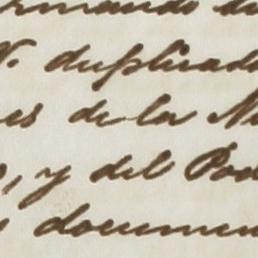 rmando du
V. duplicado
es de la Na
o, y del Pod
s documen